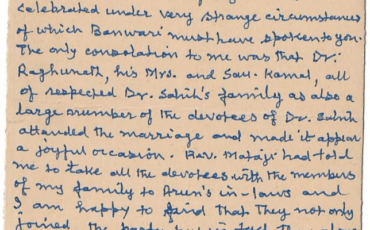 celebrated under very strange circumstances
of which Banwari must have spoken to you.
The only consolation to me was that Dr.
Raghunath, his Mrs. and Sau. Kamal, all
of respected Dr. Sahib's family as also a
large number of the devotees of Dr. Sahib
attended the marriage and made it appear
a joyful occasion. Rev. Mataji had told
me to take all the devotees with the members
of my family to Arun's in-laws and
I am happy to find that they not only
joined the party but